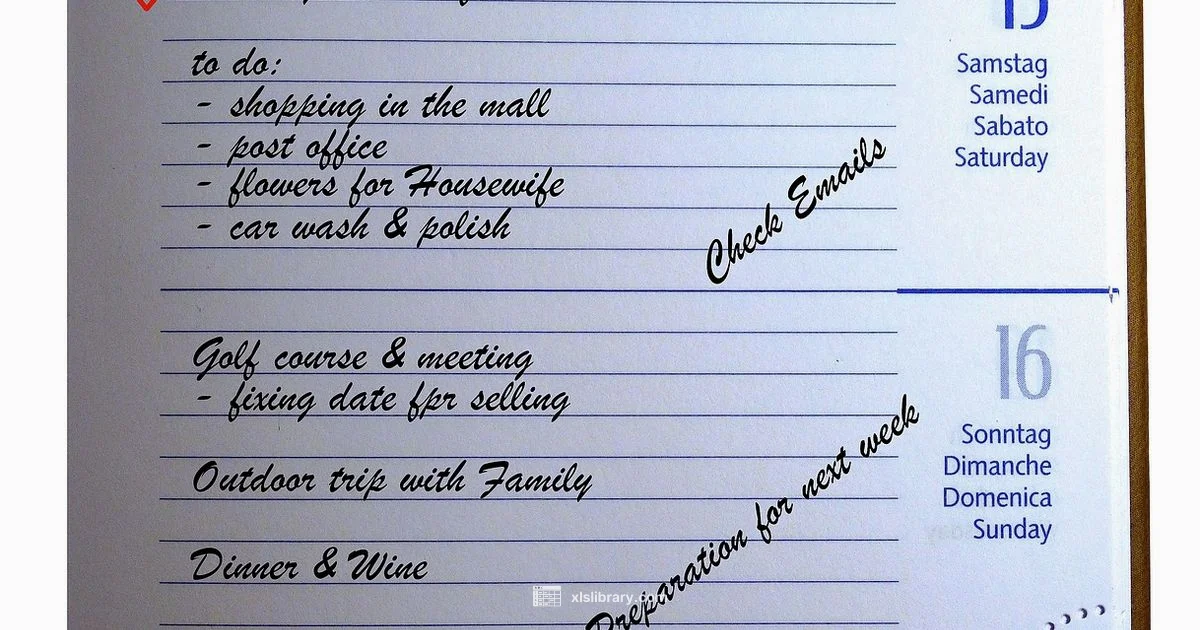 to do:
- shopping in the mall
- post office
- flowers for Housewife
- car wash & polish
Check Emails
15
Samstag
Samedi
Sabato
Saturday
Golf course & meeting
- fixing date fpr selling
Outdoor trip with Family
Dinner & Wine
Preparation for next week
16
Sonntag
Dimanche
Domenica
Sunday
xlslibrary.com